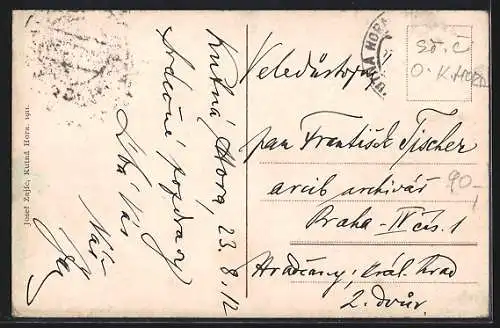 Josef Zajíc, Kutná Hora. 1911.
Kutná Hora, 23. 8. 12
Srdečné pozdravy
Líbá Vás
Náš
KUTNÁ HORA
St. Č
O. K. HORA
90-
Veledůstojný
pan František Tischer
arcib. archivář
Praha - IV čís. 1
Hradčany, král. hrad
2. dvůr.